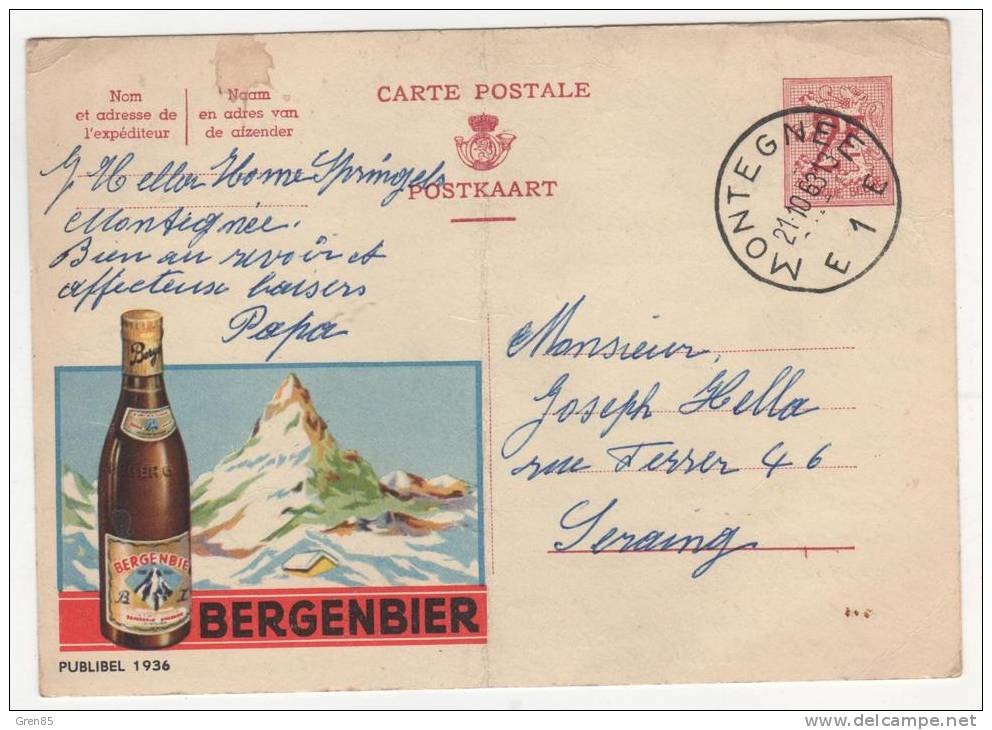 CARTE POSTALE
POSTKAART
Nom
et adresse de
l'expéditeur
Naam
en adres van
de afzender
J. Hella Home Springels
Montegnée.
Bien au revoir et
affecteux baisers
Papa
MONTEGNEE
21-10-63 13
E 1 E
Monsieur,
Joseph Hella
rue Ferrer 46
Seraing
BERGENBIE
BERGENBIER
PUBLIBEL 1936
Gren85
www.delcampe.net